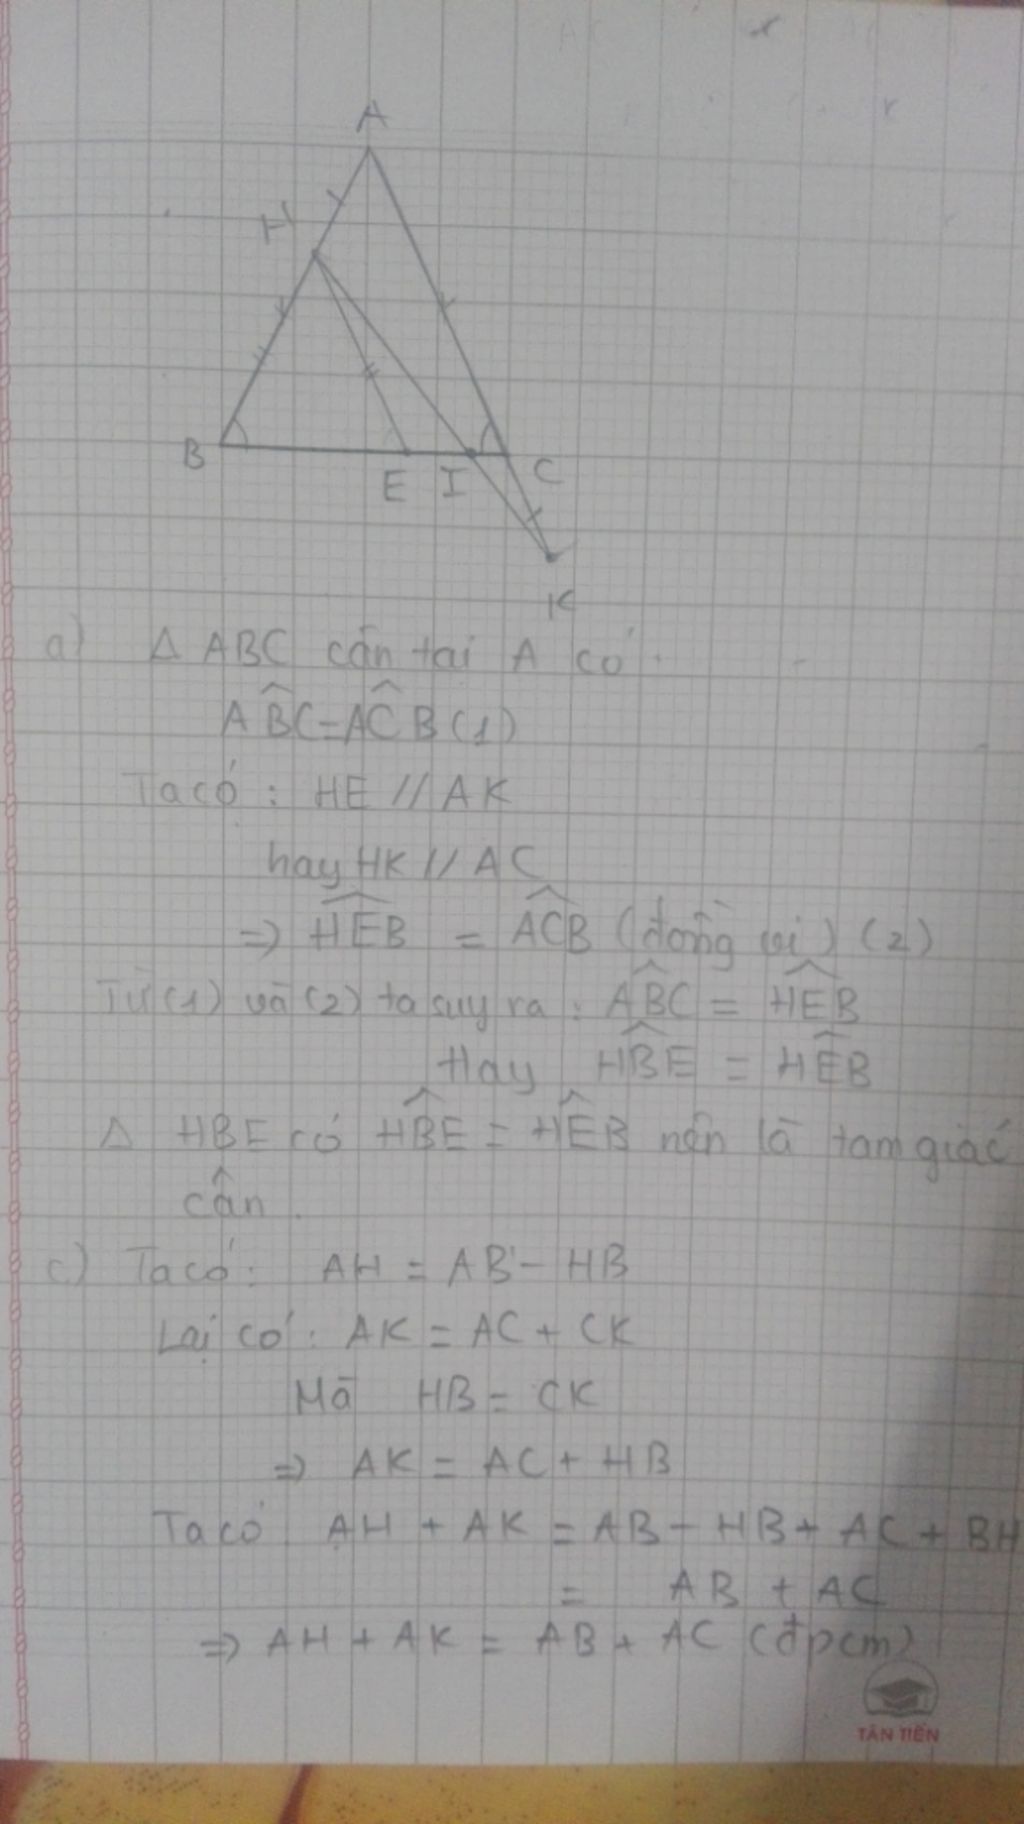 A
H
B
E
I
C
K
a) Δ ABC cân tại A có
AB̂C = AĈB (1)
Ta có : HE // AK
hay HK // AC
=> HÊB = AĈB (đồng vị) (2)
Từ (1) và (2) ta suy ra : AB̂C = HÊB
Hay HB̂E = HÊB
Δ HBE có HB̂E = HÊB nên là tam giác
cân
c) Ta có : AH = AB - HB
Lại có : AK = AC + CK
Mà HB = CK
=> AK = AC + HB
Ta có AH + AK = AB - HB + AC + BH
= AB + AC
=> AH + AK = AB + AC (đpcm)
TÂN TIẾN